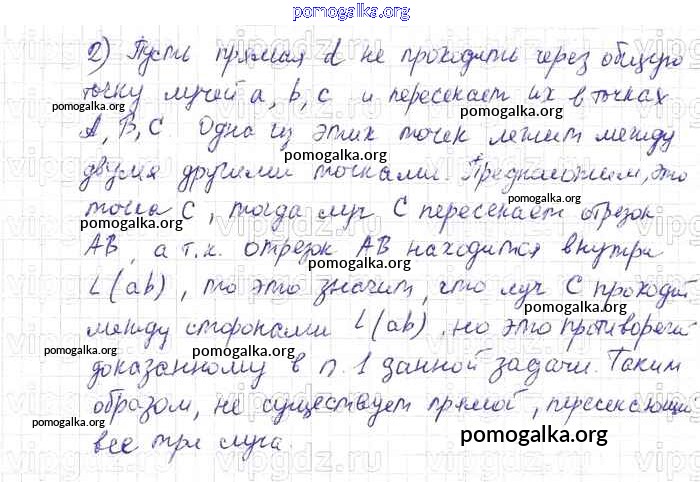 pomogalka.org
2) Пусть прямая d не проходить через общую
точку лучей a, b, c и пересекает их в точках
pomogalka.org
A, B, C Одна из этих точек лежит между
pomogalka.org
двумя другими точками. Предположим, это
pomogalka.org
точка C, тогда луч C пересекает отрезок
pomogalka.org
AB, а т.к. отрезок AB находится внутри
pomogalka.org
∠(ab), то это значит, что луч C проходит
pomogalka.org
между сторонами ∠(ab), но это противоречит
pomogalka.org
pomogalka.org
доказанному в п. 1 данной задачи. Таким
образом, не существует прямой, пересекающи
pomogalka.org
все три луча.
pomogalka.org